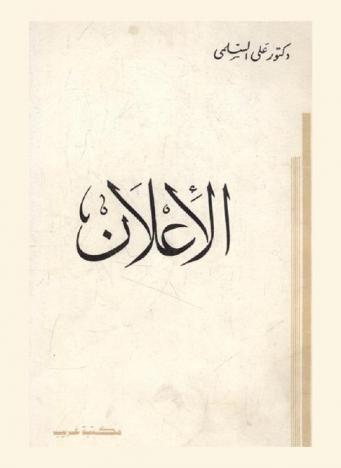 دكتور على السلمى
الأعلان
مكتبة غريب